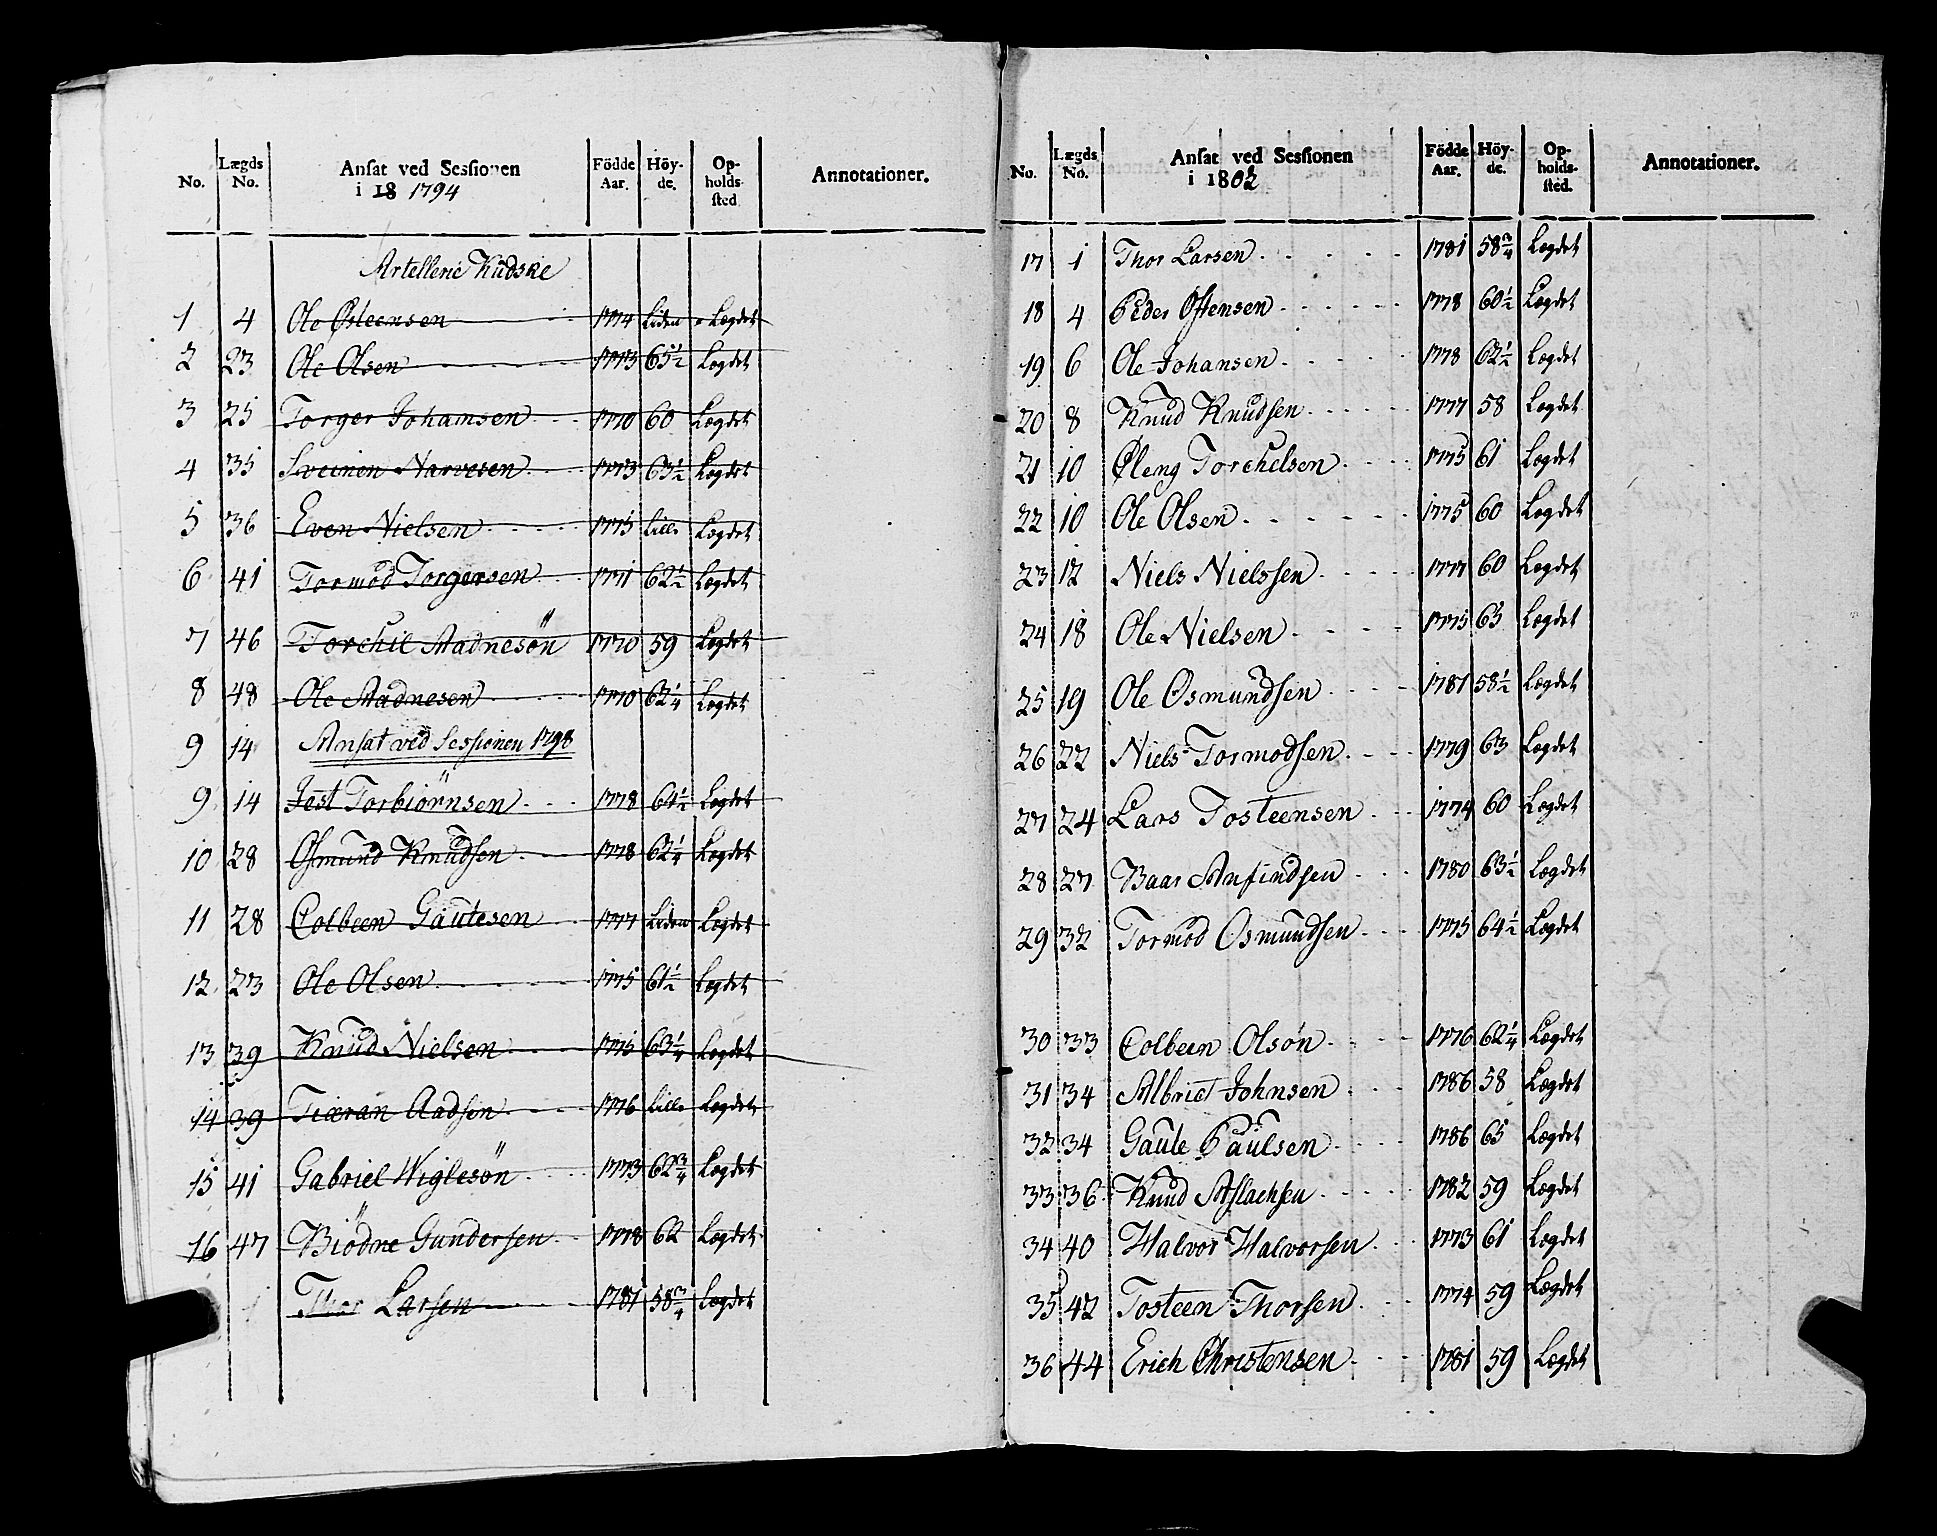 No. Lægds No. Ansat ved Sessionen i 18 1794 Födde Aar. Höy-de. Op-holds-sted Annotationer.
Artellerie Kudske
1 4 Ole Østeensen 1774 Liden Lægdet
2 23 Ole Olsen 1773 65 1/2 Lægdet
3 25 Torger Johansen 1770 60 Lægdet
4 35 Sveinen Narvesen 1773 63 1/2 Lægdet
5 36 Even Nielsen 1775 Lille Lægdet
6 41 Tormod Torgersen 1771 62 1/2 Lægdet
7 46 Torchil Aadnesøn 1770 59 Lægdet
8 48 Ole Aadnesen 1770 62 1/4 Lægdet
9 14 Ansat ved Sessionen 1798
9 14 Jost Torbiörnsen 1778 61 1/2 Lægdet
10 28 Osmund Knudsen 1778 62 1/4 Lægdet
11 28 Colbeen Gautesen 1777 Liden Lægdet
12 23 Ole Olsen 1775 61 1/2 Lægdet
13 39 Knud Nielsen 1775 63 1/4 Lægdet
14 39 Tiæran Aadsen 1776 Lille Lægdet
15 41 Gabriel Wiglesön 1773 62 3/4 Lægdet
16 47 Biödne Gundersen 1778 62 Lægdet
1 Thor Larsen 1781 58 3/4 Lægdet
No. Lægds No. Ansat ved Sessionen i 1802 Födde Aar. Höy-de. Op-holds-sted. Annotationer.
17 1 Thor Larsen 1781 58 3/4 Lægdet
18 4 Peder Ostensen 1778 60 1/2 Lægdet
19 6 Ole Johansen 1778 62 1/2 Lægdet
20 8 Knud Knudsen 1777 58 Lægdet
21 10 Øleng Torchelsen 1775 61 Lægdet
22 10 Ole Olsen 1775 60 Lægdet
23 12 Niels Nielssen 1777 60 Lægdet
24 18 Ole Nielsen 1775 63 Lægdet
25 19 Ole Osmundsen 1781 58 1/2 Lægdet
26 22 Niels Tormodsen 1779 63 Lægdet
27 24 Lars Tosteensen 1774 60 Lægdet
28 27 Baar Anfindsen 1780 63 1/2 Lægdet
29 32 Tormod Osmundsen 1775 64 1/2 Lægdet
30 33 Colbeen Olsøn 1776 62 1/4 Lægdet
31 34 Albrict Johnsen 1786 58 Lægdet
32 34 Gaute Paulsen 1786 65 Lægdet
33 36 Knud Aslachsen 1782 59 Lægdet
34 40 Halvor Halvorsen 1773 61 Lægdet
35 42 Tosteen Thorsen 1774 59 Lægdet
36 44 Erich Christensen 1781 59 Lægdet